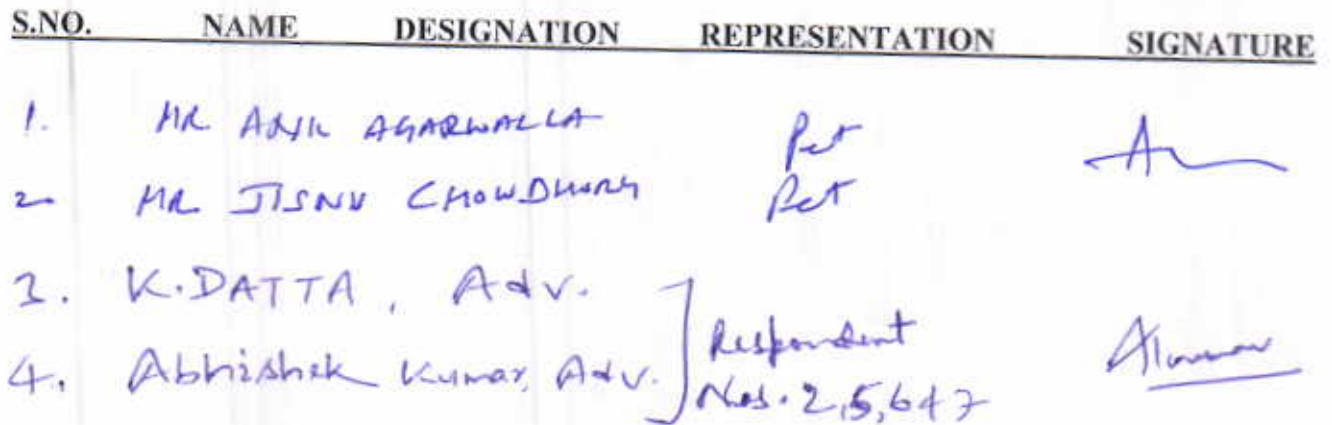 S.NO. NAME DESIGNATION REPRESENTATION SIGNATURE
1. MR ANIL AGARWALLA Pet
2 MR JISNU CHOWDHURY Pet
3. K.DATTA, Adv.
4. Abhishek Kumar, Adv. Respondent
Nos. 2,5,6 & 7